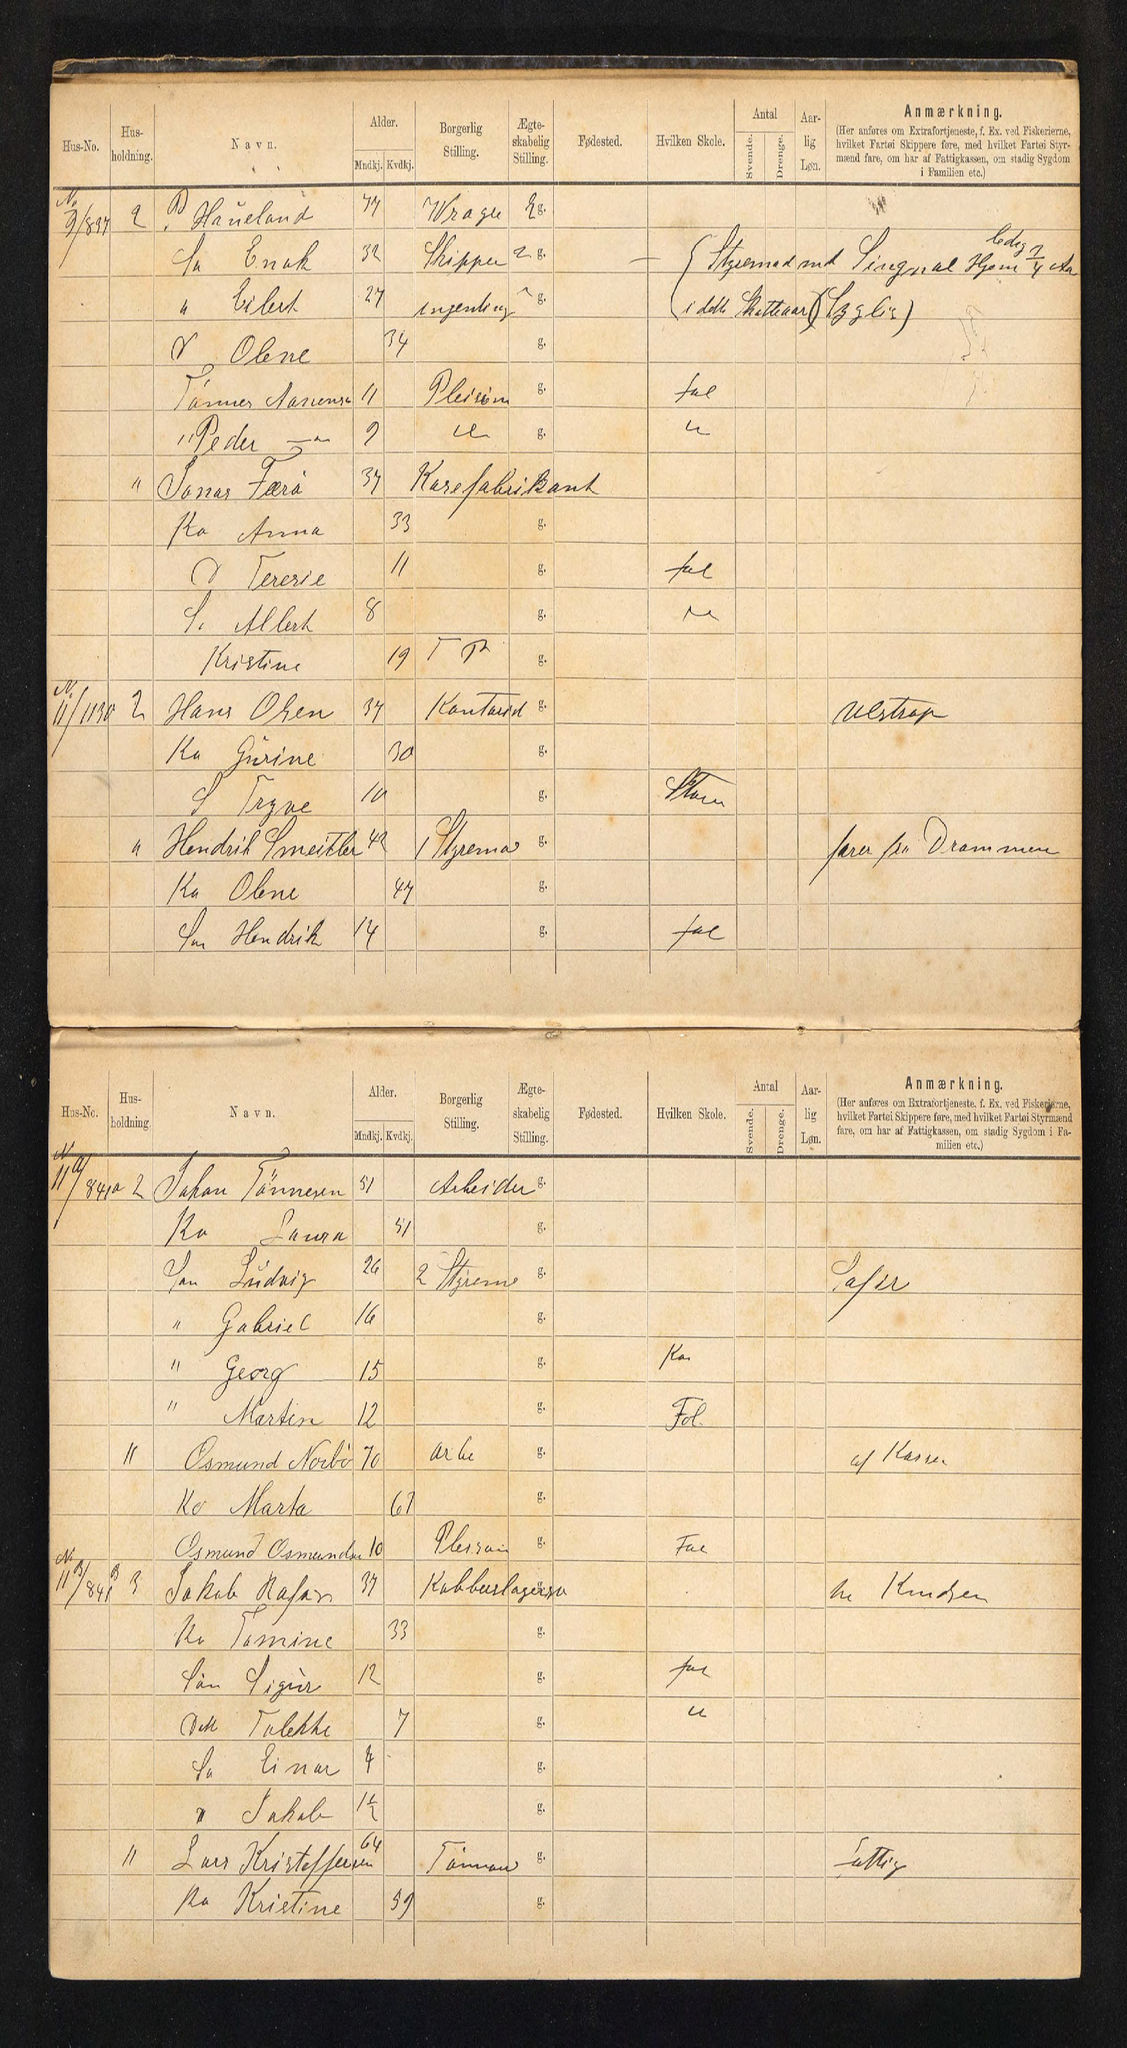 Hus-No. Hus-holdning. Navn. Alder. Mndkj. Kvdkj. Borgerlig Stilling. Ægte-skabelig Stilling. Fødested. Hvilken Skole. Antal Svende. Drenge. Aar-lig Løn. Anmærkning.
(Her anføres om Extrafortjeneste, f. Ex. ved Fiskerierne, hvilket Fartøi Skippere føre, med hvilket Fartøi Styrmænd fare, om har af Fattigkassen, om stadig Sygdom i Familien etc.)
No 9/837 2 P. Håueland 77 Vrager g.
Sø Enok 32 Skipper 2 g. — ( Styrmad md Singnal Hjem ledig
" Eilert 27 ingenting g. (i dette Skatteaar) (Syglig)
D Olene 34 g.
Tønnes Aanensen 11 Pleisön g. fol
" Peder — 9 " g. "
" Jonas Færö 37 Karefabrikant
Ko Anna 33 g.
D Tererie 11 g. fol
S. Albert 8 g. "
Kristine 19 T P g.
No 11/1130 2 Hans Olsen 37 Kontorist g. Ulstrap
Ko Gurine 30 g.
S Trygve 10 g. Stor
" Hendrik Smeitler 42 1 Styrema g. farer fra Drammen
Ko Olene 47 g.
Søn Hendrik 14 g. fol
Hus-No. Hus-holdning. Navn. Alder. Mndkj. Kvdkj. Borgerlig Stilling. Ægte-skabelig Stilling. Fødested. Hvilken Skole. Antal Svende. Drenge. Aar-lig Løn. Anmærkning.
(Her anføres om Extrafortjeneste, f. Ex. ved Fiskerierne, hvilket Fartøi Skippere føre, med hvilket Fartøi Styrmænd fare, om har af Fattigkassen, om stadig Sygdom i Familien etc.)
N 11 a/841a 2 Johan Tönnesen 51 Arbeider g.
Ko Laura 51 g.
Søn Ludvig 26 2 Styreme g.
" Gabriel 16 g.
" Georg 15 g. Kon
" Martin 12 g. Fol.
" Osmund Norbö 70 arbe g. af Kassen
Ko Marta 67 g.
Osmund Osmundsen 10 Plesson g. Fol
No 11 B/841 B 3 Jakob Rafos 37 Kobberslager g. Knudsen
Ko Tomine 33 g.
Sön Sigur 12 g. fol
Datt Tolekke 7 g. "
Sø Einar 4 g.
" Jakob 1½ g.
" Lars Kristoffersen 64 Tömmer g. fattig
Ko Kristine 59 g.